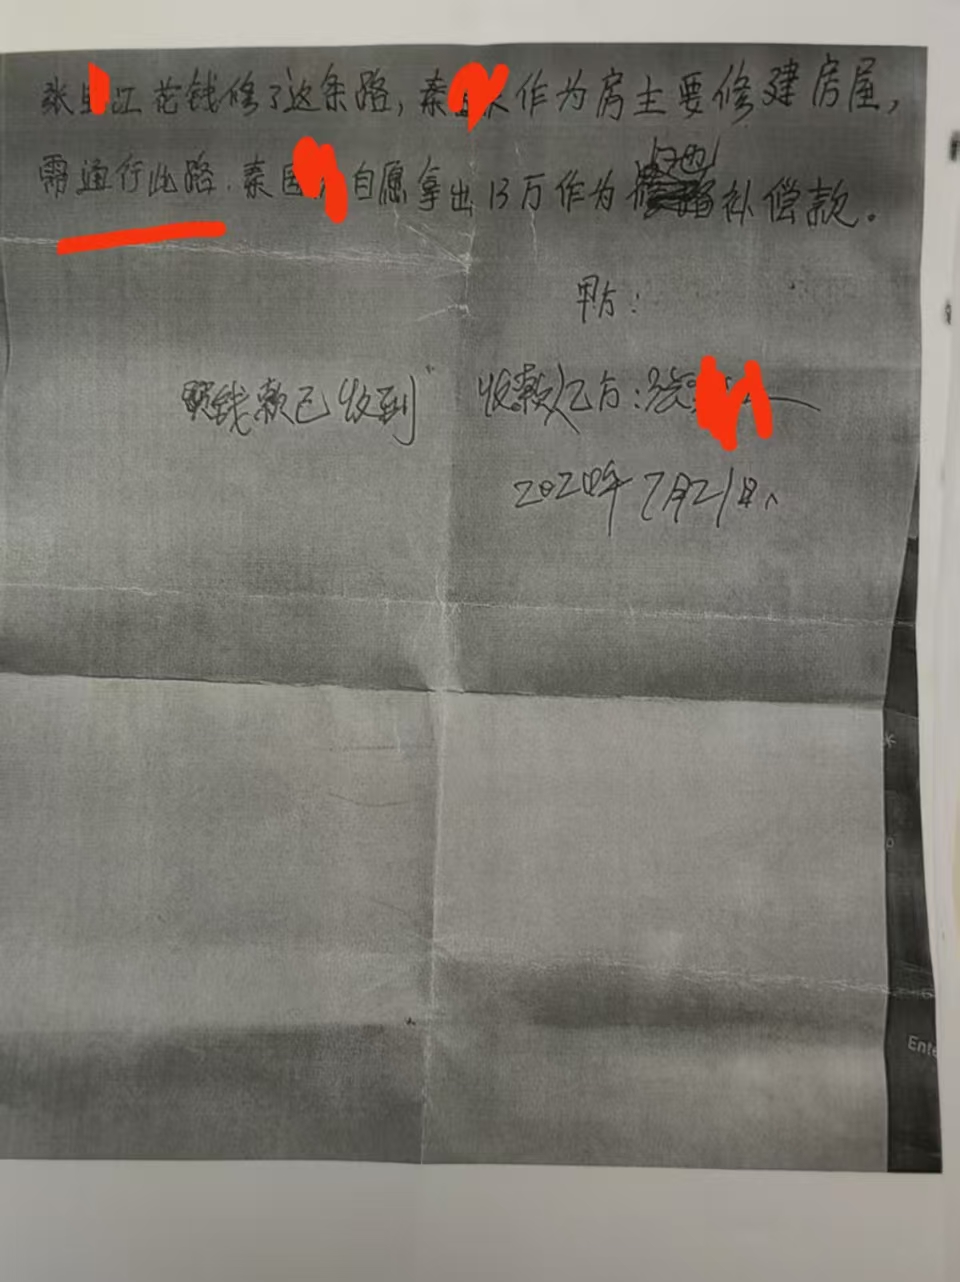 张江花钱修了这条路，秦作为房主要修建房屋，
需通行此路．秦自愿拿出13万作为补偿款。
甲方：
钱款已收到 收款乙方：张
2020年7月21日
Ente